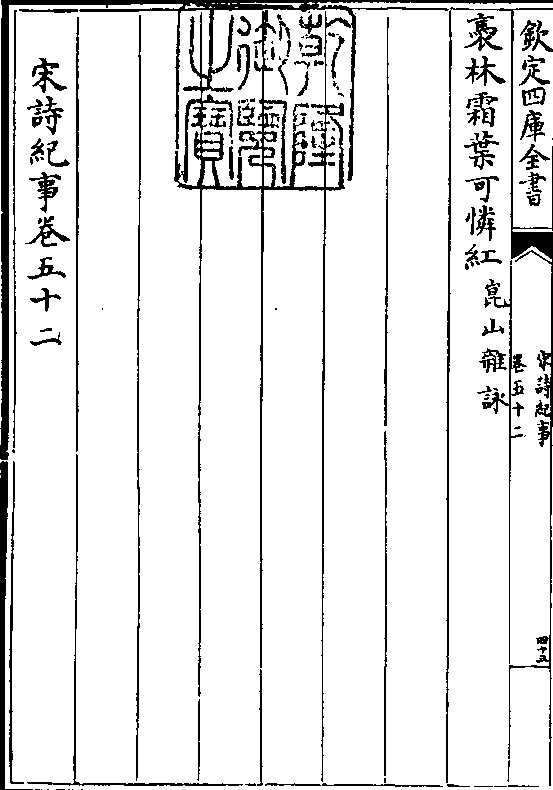 欽定四庫全書
宋詩紀事
卷五十二
四十五
裛林霜葉可憐紅 崑山雜詠
乾隆
御覽
之寶
宋詩紀事卷五十二